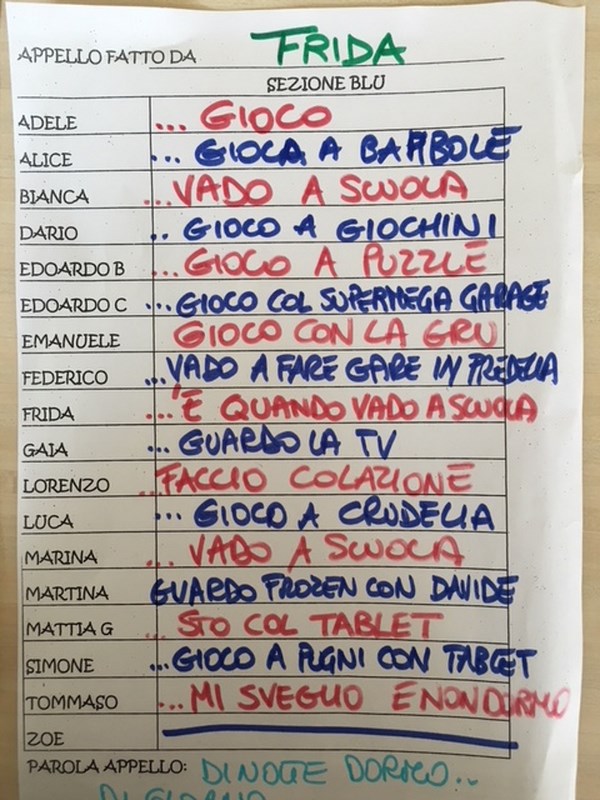 APPELLO FATTO DA FRIDA
SEZIONE BLU
ADELE ... GIOCO
ALICE ... GIOCA A BAMBOLE
BIANCA ...VADO A SCUOLA
DARIO .. GIOCO A GIOCHINI
EDOARDO B ...GIOCO A PUZZLE
EDOARDO C ...GIOCO COL SUPERMEGA GARAGE
EMANUELE GIOCO CON LA GRU
FEDERICO ...VADO A FARE GARE IN PREDELIA
FRIDA ...'E QUANDO VADO A SCUOLA
GAIA ... GUARDO LA TV
LORENZO ...FACCIO COLAZIONE
LUCA ... GIOCO A CRUDELIA
MARINA ... VADO A SCUOLA
MARTINA GUARDO FROZEN CON DAVIDE
MATTIA G ... STO COL TABLET
SIMONE ...GIOCO A PUGNI CON TABLET
TOMMASO ...MI SVEGLIO E NON DORMO
ZOE
PAROLA APPELLO: DI NOTTE DORMO..
DI GIORNO